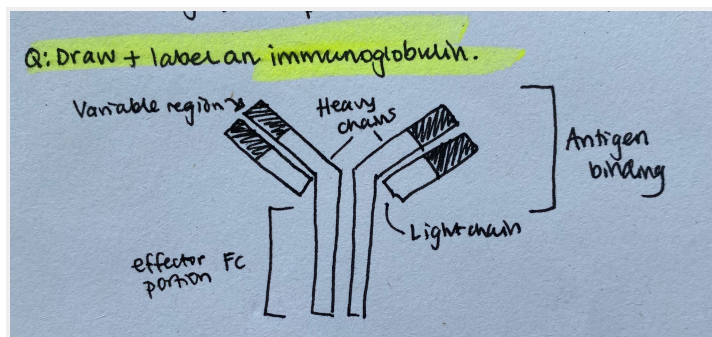 Q: Draw + label an immunoglobulin.
Variable region
Heavy
chains
Antigen
binding
Light chain
effector FC
portion